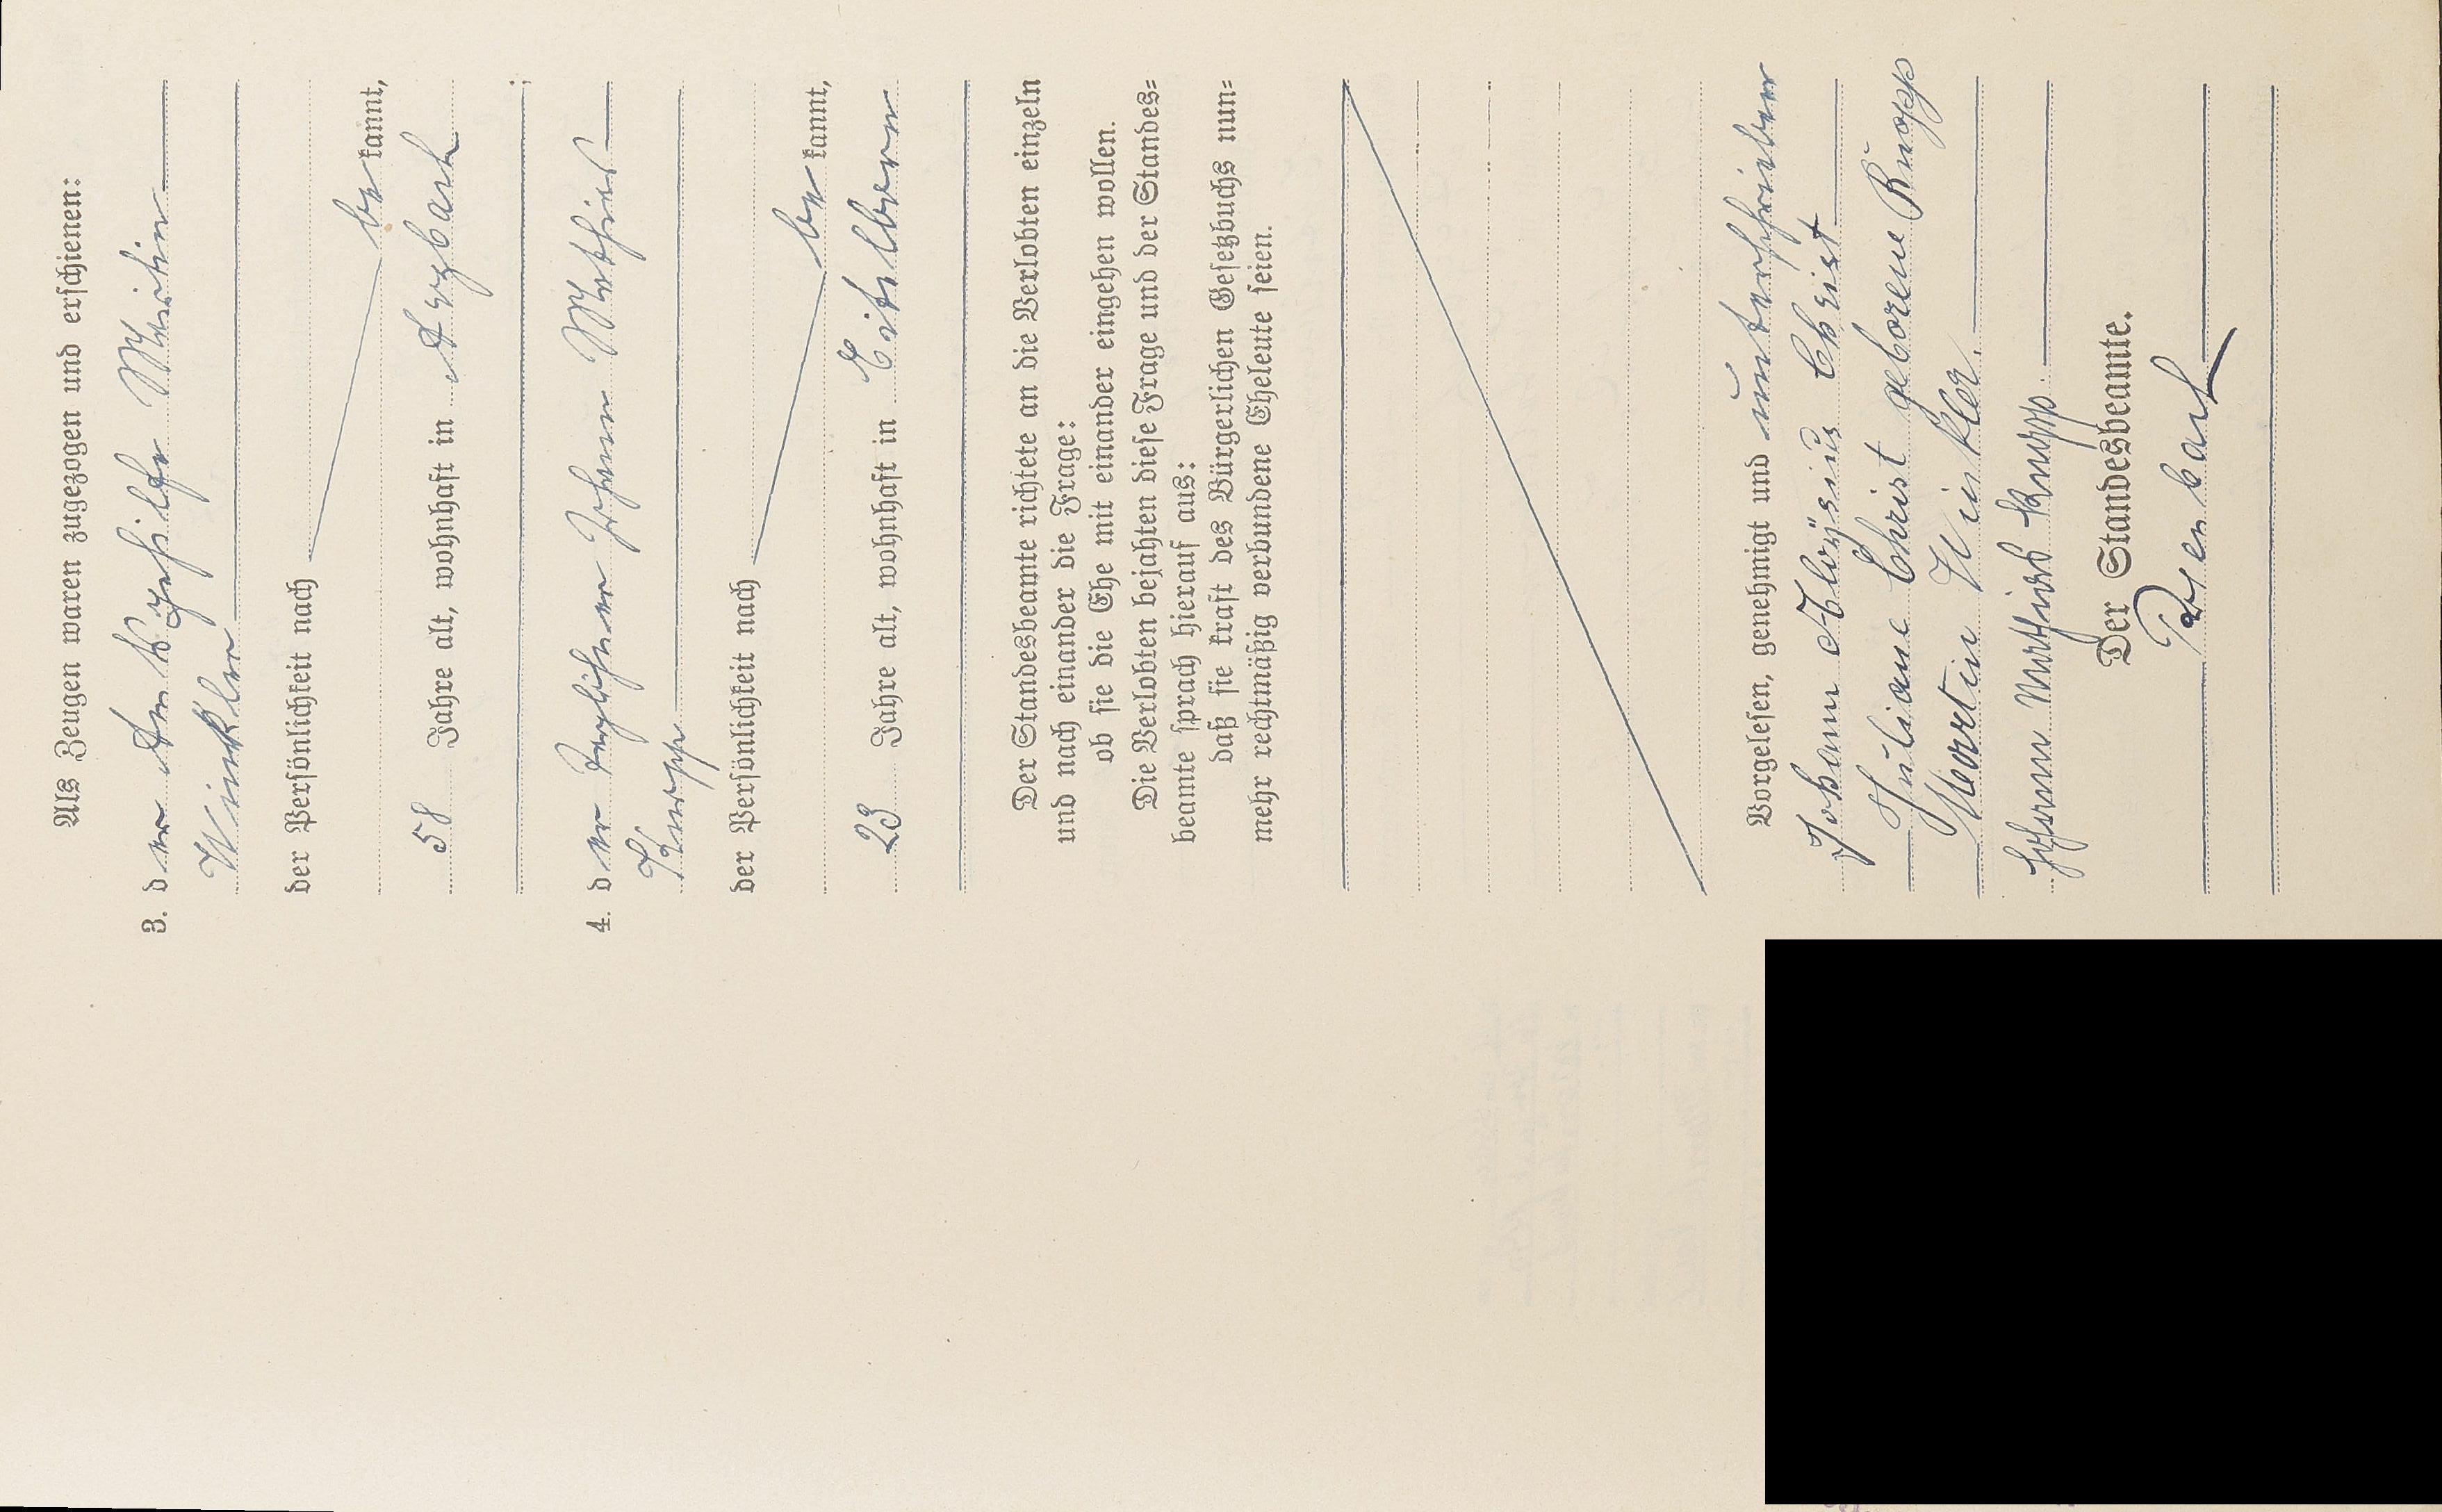 Als Zeugen waren zugezogen und erschienen:
3. der Amtsgehilfe Martin
Winkler
der Persönlichkeit nach
be kannt,
58 Jahre alt, wohnhaft in Arzbach
;
4. der Taglöhner Johann Mathias
Knopp
der Persönlichkeit nach
be kannt,
23 Jahre alt, wohnhaft in Eitelborn
Der Standesbeamte richtete an die Verlobten einzeln
und nach einander die Frage:
ob sie die Ehe mit einander eingehen wollen.
Die Verlobten bejahten diese Frage und der Standes=
beamte sprach hierauf aus:
daß sie kraft des Bürgerlichen Gesetzbuchs nun=
mehr rechtmäßig verbundene Eheleute seien.
Vorgelesen, genehmigt und unterschrieben
Johann Aloysius Christ
Juliane Christ geborene Knopp
Martin Winkler.
Johann Mathias Knopp.
Der Standesbeamte.